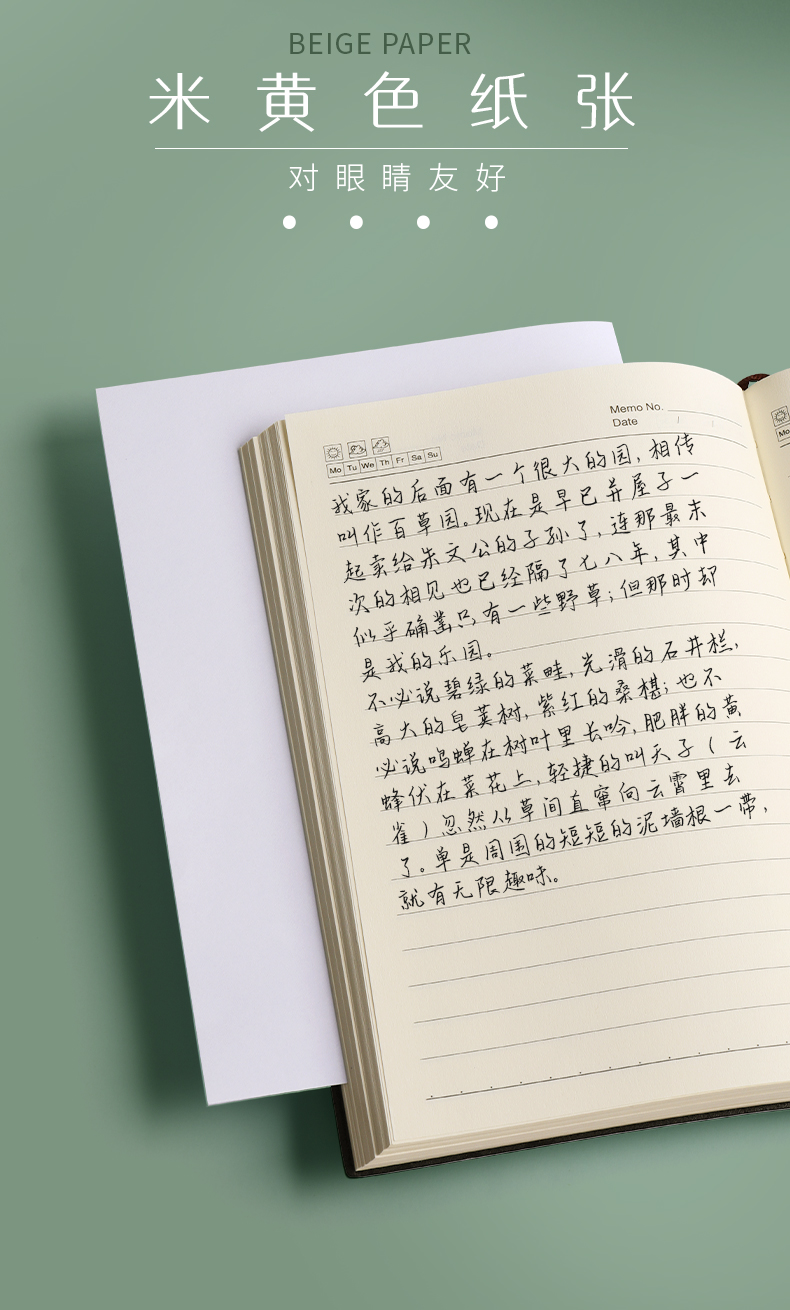 BEIGE PAPER
米黄色纸张
对眼睛友好
Memo No.
Date / /
Mo Tu We Th Fr Sa Su
我家的后面有一个很大的园,相传
叫作百草园。现在是早已并屋子一
起卖给朱文公的子孙了,连那最末
次的相见也已经隔了七八年,其中
似乎确凿只有一些野草;但那时却
是我的乐园。
不必说碧绿的菜畦,光滑的石井栏,
高大的皂荚树,紫红的桑椹;也不
必说鸣蝉在树叶里长吟,肥胖的黄
蜂伏在菜花上,轻捷的叫天子(云
雀)忽然从草间直窜向云霄里去
了。单是周围的短短的泥墙根一带,
就有无限趣味。
Mo